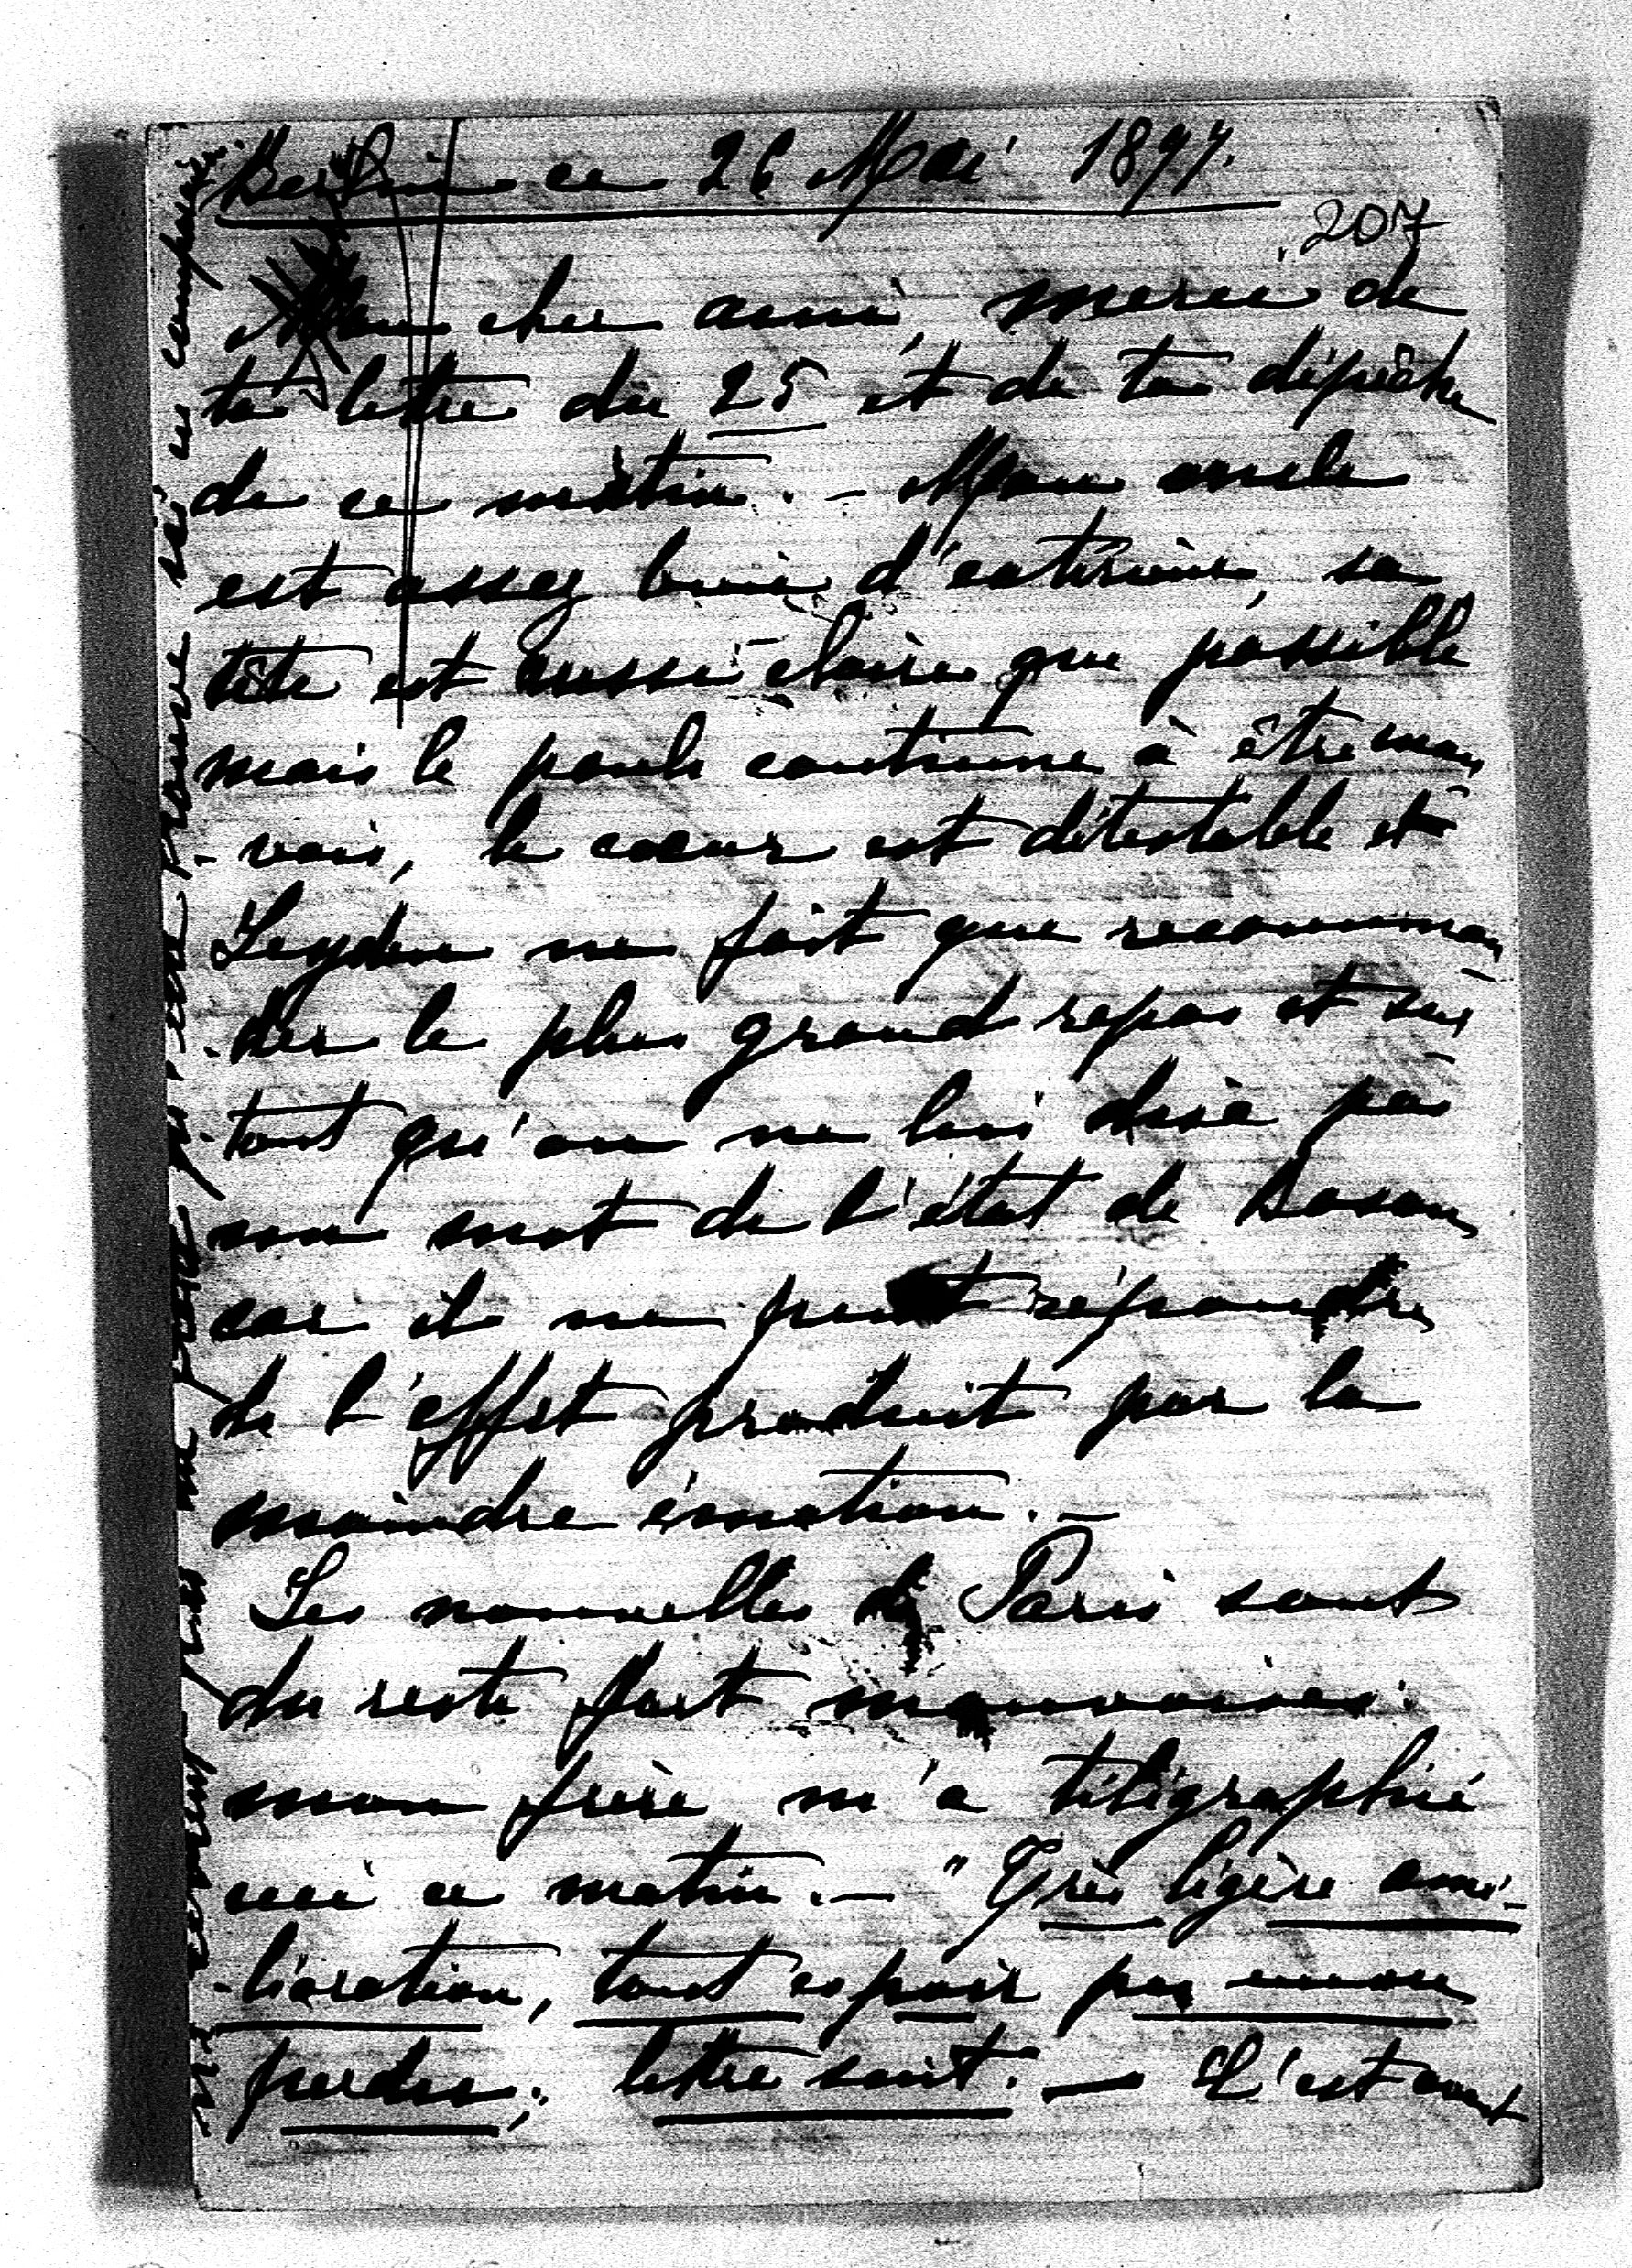 Berlin ce 26 Mai 1897.
207
Mon cher ami, merci de
ta lettre du 25 et de ta dépêche
de ce matin. – Mon oncle
est assez bien d'extérieur, sa
tête est aussi claire que possible
mais le pouls continue à être mau
-vais, le cœur est détestable et
Leyden ne fait que recomman
-der le plus grand repos et sur
-tout qu'on ne lui dise pas
un mot de l'état de Boson
car il ne peut répondre
de l'effet produit par la
moindre émotion. –
Les nouvelles de Paris sont
du reste fort mauvaises.
mon frère m'a télégraphié
ceci ce matin. – "Très légère amé-
-lioration, tout espoir pas encore
perdu; lettre suit. – C'est